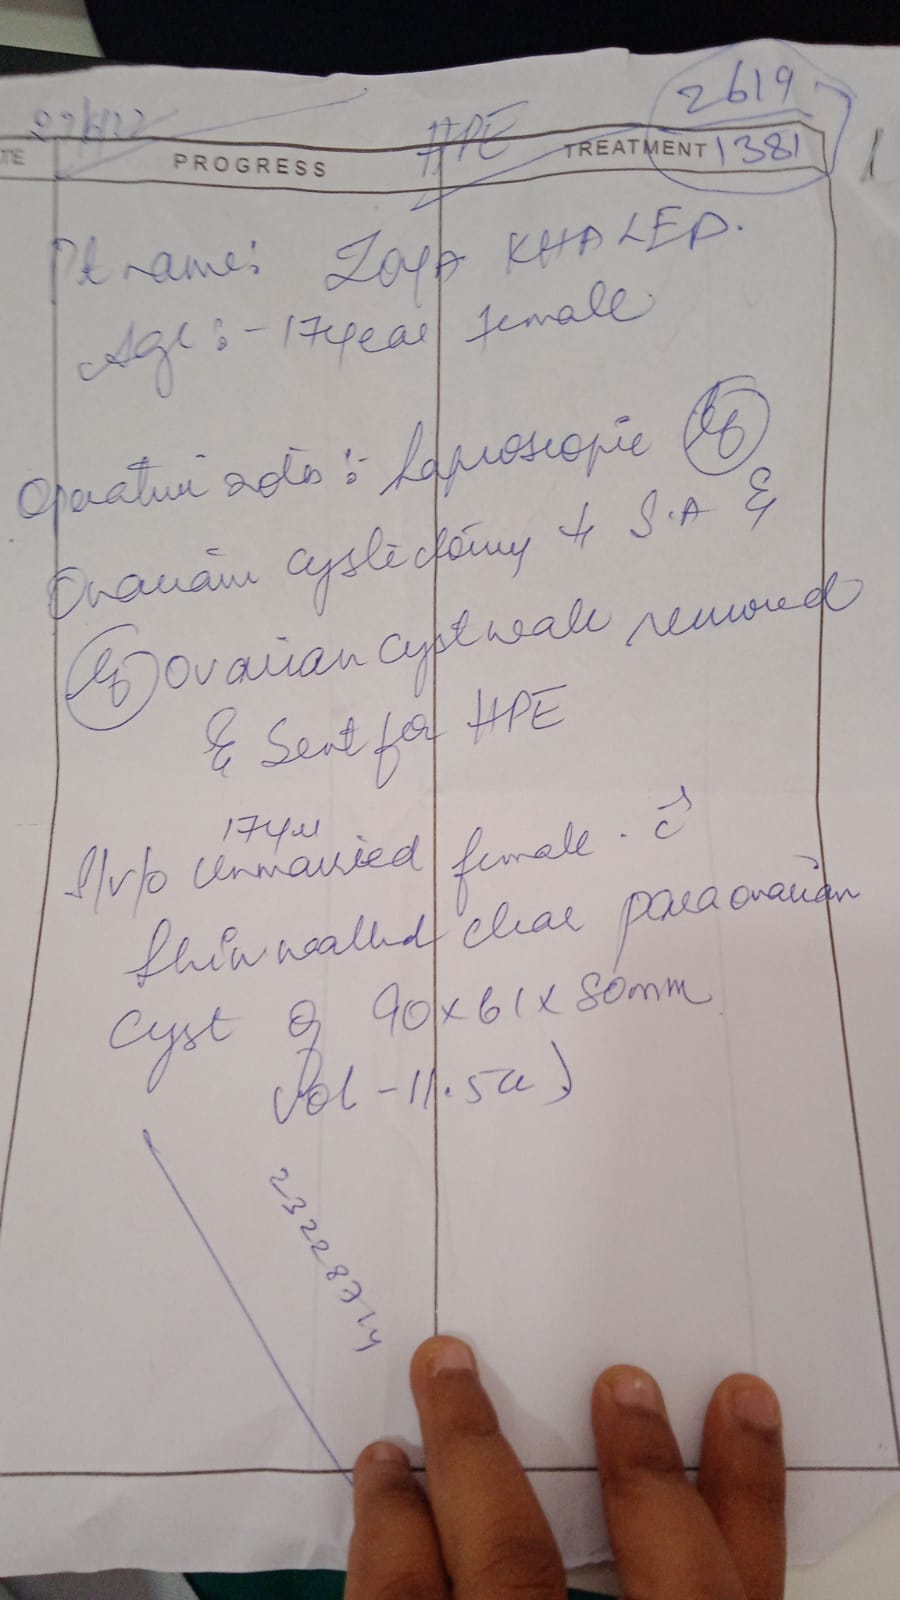 2619
HPE
PROGRESS TREATMENT 1381
Pt name: ZOYA KHALED.
Age :- 17year female
Operative notes :- Laproscopic
Ovarian cystectomy + S.A &
Ovarian cyst wall removed
& Sent for HPE
17yr
unmarried female. c̄
thin walled clear paraovarian
cyst of 90x61x80mm
Vol - 11.5cc)